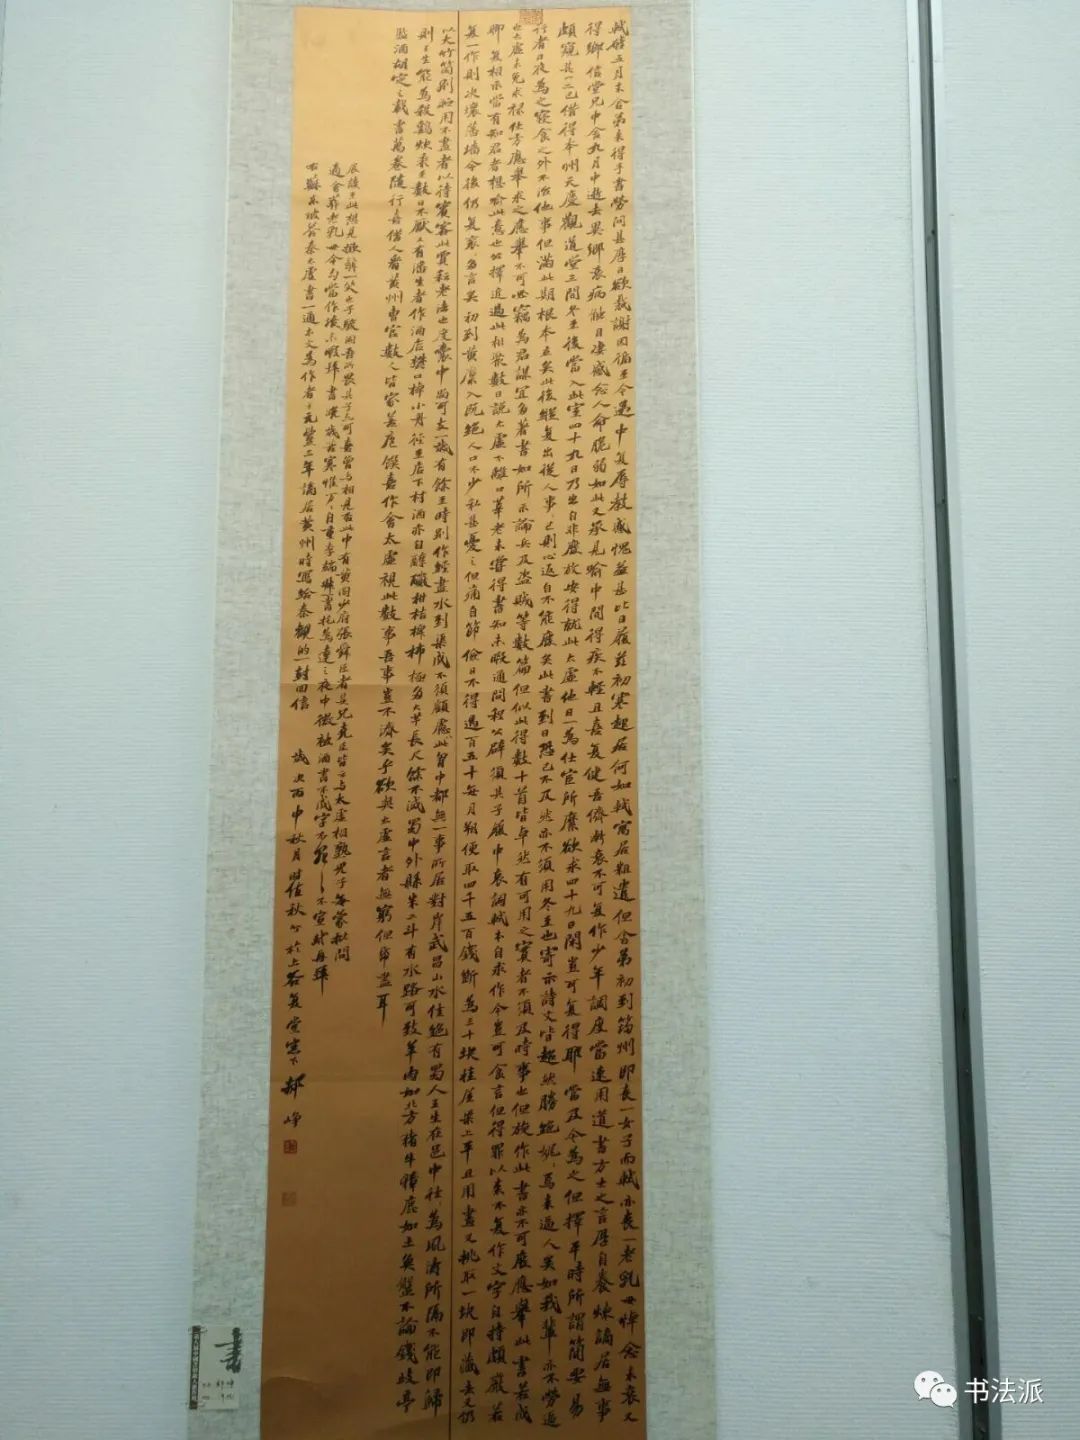 轼启五月末舍弟来得手书劳问甚厚日欲裁谢因循至今遞中复辱教感愧益甚比日履兹初寒起居何如轼寓居粗遣但舍弟初到筠州即丧一女子而轼亦丧一老乳母悼念未衰又
得鄉信堂兄中舍九月中逝去異鄉衰病觸目凄感念人命脆弱如此又承見喻中間得疾不輕且喜复健吾儕漸衰不可复作少年調度當速用道書方士之言厚自養煉謫居無事
頗窺其一二已借得本州天慶觀道堂三間冬至後當入此室四十九日乃出自非廢放安得就此太虛他日一為仕宦所縻欲求四十九日閑豈可复得耶當及今為之但擇平時所謂簡要易
行者日夜為之寢食之外不治他事但滿此期根本立矣此後縱复出從人事已則心返自不能廢矣此書到日恐已不及然亦不須用冬至也寄示詩文皆超然勝絕娓娓焉來逼人矣如我輩亦不勞逼
也太虛未免求祿仕方應舉求之應舉不可必竊為君謀宜多著書如所示論兵及盜賊等數篇但似此得數十首皆卓然有可用之實者不須及時事也但旋作此書亦不可廢應舉此書若成
聊复相示當有知君者想喻此意也公擇近過此相聚數日說太虛不離口莘老未嘗得書知未暇通問程公辟須其子履中哀詞軾本自求作今豈可食言但得罪以來不复作文字自持頗嚴若
复一作則决壞藩墻今後仍复衮衮多言矣初到黃廩入既絕人口不少私甚憂之但痛自節儉日不得過百五十每月朔便取四千五百錢斷為三十塊挂屋梁上平旦用畫叉挑取一塊即藏去叉仍
以大竹筒別貯用不盡者以待賓客此賈耘老法也度囊中尚可支一歲有餘至時別作經畫水到渠成不須顧慮此胸中都無一事所居對岸武昌山水佳絕有蜀人王生在邑中往往為風濤所隔不能即歸
則王生能為殺雞炊黍至數日不厭又有潘生者作酒店樊口棹小舟徑至店下村酒亦自醇釅柑桔椑柿極多大芋長尺餘不減蜀中外縣米二斗有水路可致羊肉如北方豬牛獐鹿如土魚蟹不論錢歧亭
監酒胡定之載書萬卷隨行喜借人看黃州曹官數人皆家善庖饌喜作會太虛視此數事吾事豈不濟矣乎欲與太虛言者無窮但紙盡耳
展讀至此想見掀髯一笑也子駿固吾所畏其子亦可喜曾與相見否此中有黃岡少府張舜臣者其兄堯臣皆云與太虛相熟兒子每蒙批問
適會葬老乳母今勾當作墳未暇拜書歲晚苦寒惟萬萬自重李端叔一書托為達之夜中微被酒書不成字不罪不罪不宣軾再拜
右蘇東坡答秦太虛書一通本文為作者于元豐二年謫居黃州時寫給秦觀的一封回信
歲次丙申秋月
郝峥
書
书法派